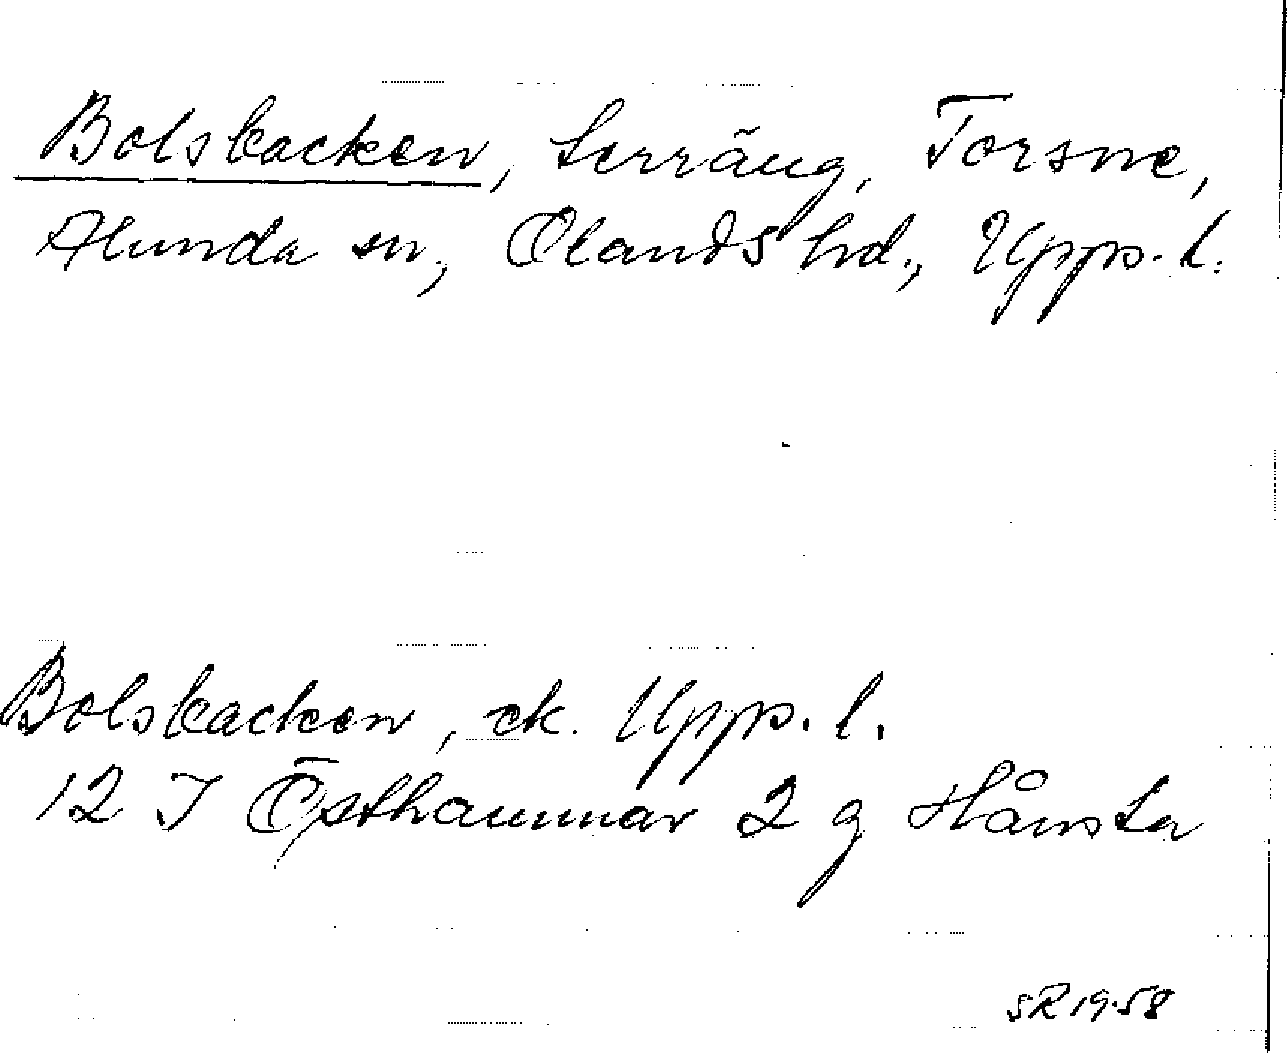 Bolsbacken, terräng, Torsne,
Alunda sn, Olands hd., Upps. l.
Bolsbacken, ek. Upps. l.
12 I Östhammar 2 g Hånsta
SR 1958